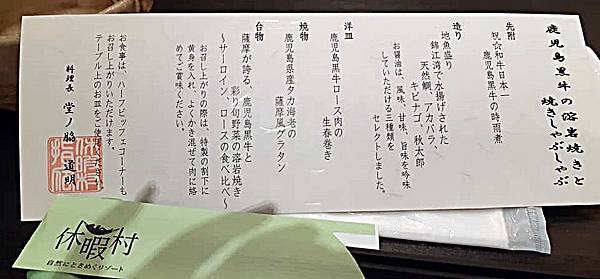 鹿児島黒牛の溶岩焼きと
焼きしゃぶしゃぶ
先附
祝☆和牛日本一
鹿児島黒牛の時雨煮
造り
地魚盛り
錦江湾で水揚げされた
天然鯛、アカバラ、
キビナゴ、秋太郎
お醤油は、風味、甘味、旨味を吟味
していただける三種類を
セレクトしました。
洋皿
鹿児島黒牛ロース肉の
生春巻き
焼物
鹿児島県産タカ海老の
薩摩風グラタン
台物
薩摩が誇る 鹿児島黒牛と
彩り旬野菜の溶岩焼き
〜サーロイン、ロースの食べ比べ〜
お召し上がりの際は、特製の割下に
黄身を入れ、よくかき混ぜて肉に絡
めてご賞味ください。
お食事は、ハーフビッフェコーナーも
お召し上がりいただけます。
テーブル上のお皿をご使
料理長 堂ノ脇 道明
休暇村
自然にときめくリゾート